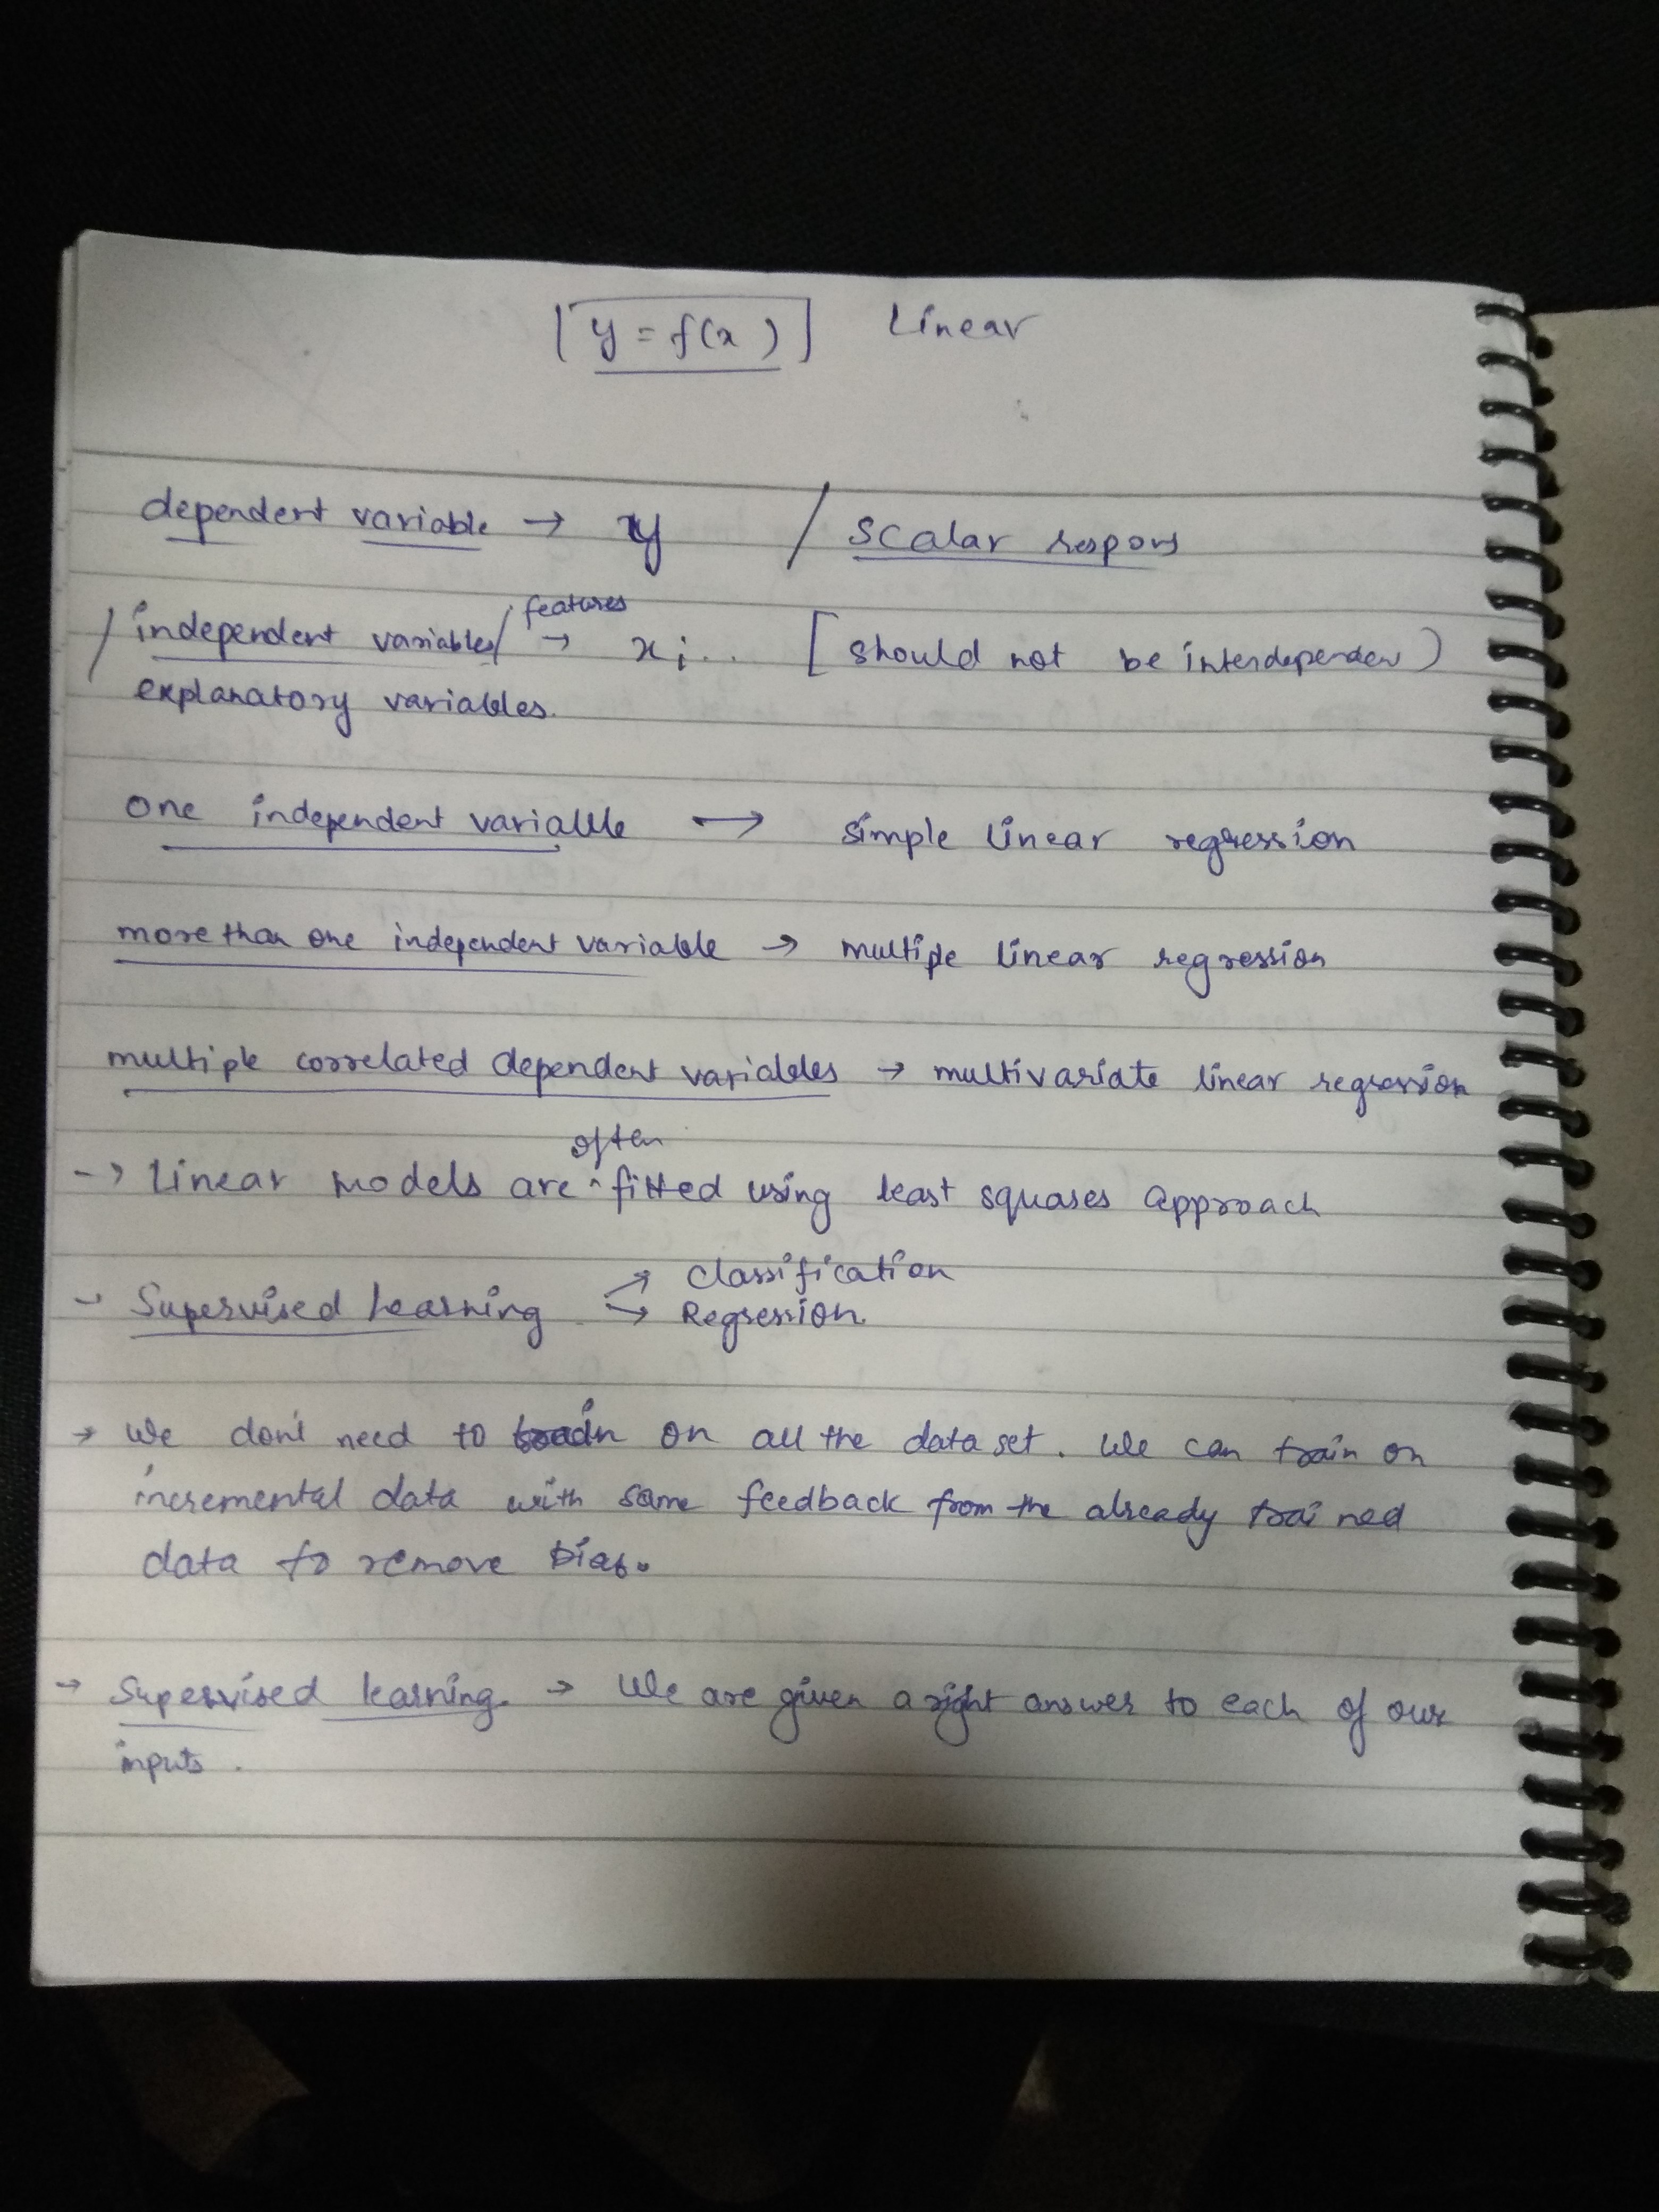 [y = f(x)] Linear
dependent variable → y / Scalar respons
/ independent variables / features → xi.. [should not be interdependen)
explanatory variables.
One independent variable → simple linear regression
more than one independent variable → multiple linear regression
multiple correlated dependent variables → multivariate linear regression
→ Linear models are ^often fitted using least squares approach
- Supervised Learning → Classification
→ Regression.
→ We don't need to train on all the data set. We can train on
incremental data with some feedback from the already trained
data to remove bias.
→ Supervised learning. → We are given a right answer to each of our
inputs.